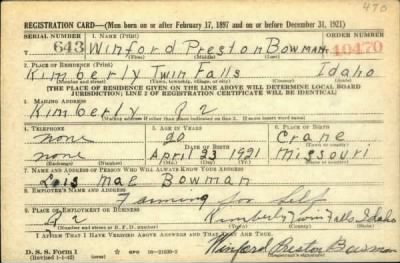 470
REGISTRATION CARD—(Men born on or after February 17, 1897 and on or before December 31, 1921)
SERIAL NUMBER 1. NAME (Print) ORDER NUMBER
643 Winford Preston Bowman 10470
(First) (Middle) (Last)
2. PLACE OF RESIDENCE (Print)
Kimberly Twin Falls Idaho
(Number and street) (Town, township, village, or city) (County) (State)
[THE PLACE OF RESIDENCE GIVEN ON THE LINE ABOVE WILL DETERMINE LOCAL BOARD
JURISDICTION; LINE 2 OF REGISTRATION CERTIFICATE WILL BE IDENTICAL]
3. MAILING ADDRESS
Kimberly R 2
[Mailing address if other than place indicated on line 2. If same insert word same]
4. TELEPHONE 5. AGE IN YEARS 6. PLACE OF BIRTH
none 20 Crane
DATE OF BIRTH
none April 23 1921 Missouri
(Exchange) (Number) (Mo.) (Day) (Yr.) (State or country)
7. NAME AND ADDRESS OF PERSON WHO WILL ALWAYS KNOW YOUR ADDRESS
Lois Mae Bowman
8. EMPLOYER'S NAME AND ADDRESS
Farming for Self
9. PLACE OF EMPLOYMENT OR BUSINESS
R 2 Kimberly Twin Falls Idaho
(Number and street or R. F. D. number) (Town) (County) (State)
I AFFIRM THAT I HAVE VERIFIED ABOVE ANSWERS AND THAT THEY ARE TRUE.
D. S. S. Form 1 GPO 16—21630-2 Winford Preston Bowman
(Revised 1-1-42) (over) (Registrant's signature)